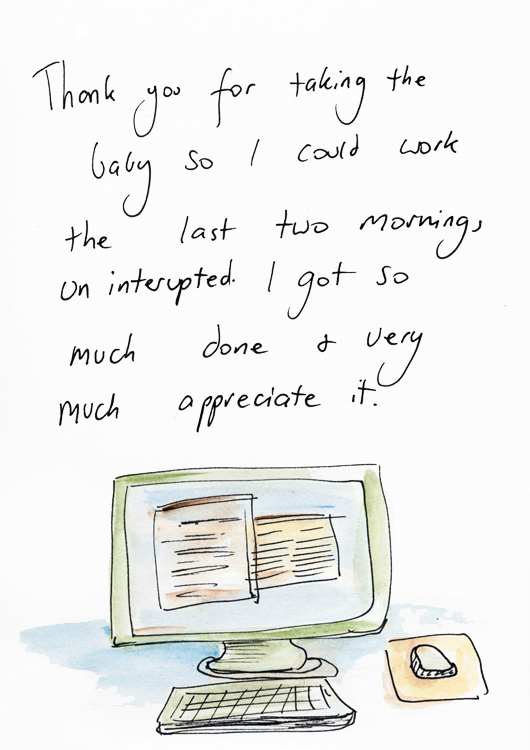 Thank you for taking the
baby so I could work
the last two mornings
un interupted. I got so
much done & very
much appreciate it.